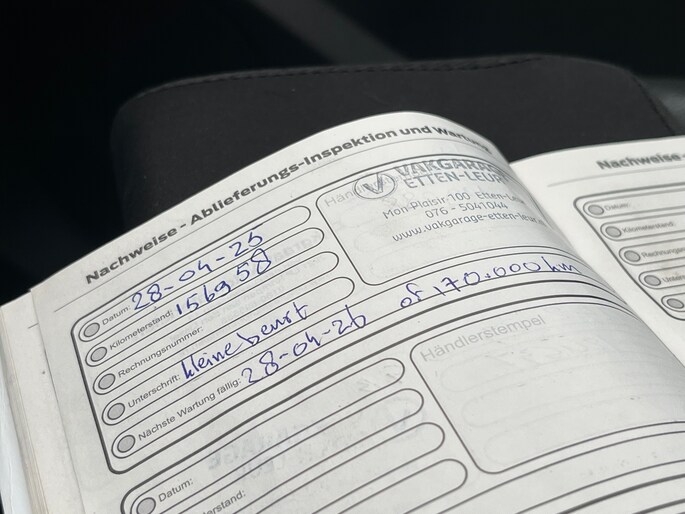 Nachweise - Ablieferungs-Inspektion und Wartung
Datum: 28-04-25
Kilometerstand: 156958
Rechnungsnummer:
Unterschrift: kleine beurt
Nächste Wartung fällig: 28-04-26 of 170.000 km
VAKGARAGE
ETTEN-LEUR
Mon-Plaisir 100 Etten-Leur
076 - 5041044
www.vakgarage-etten-leur.nl
Händlerstempel
Datum:
Nachweise -
Datum:
Kilometerstand:
Rechnungsnummer: